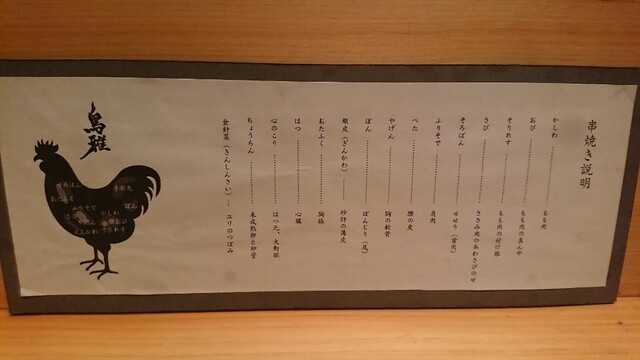 串焼き説明
かしわ…………もも肉
おび…………もも肉の真ん中
そりれす…………もも肉の付け根
さび…………ささみ肉の本わさびのせ
そろばん…………せせり（首肉）
ふりそで…………肩肉
べた…………腰の皮
やげん…………胸の軟骨
ぼん…………ぼんじり（尾）
銀皮（ぎんかわ）…………砂肝の薄皮
おたふく…………胸腺
はつ…………心臓
心のこり…………はつ元、大動脈
ちょうちん…………未成熟卵と卵管
金針菜（きんしんさい）…ユリのつぼみ
そろばん
おたふく
ふりそで
かしわ
ぼん